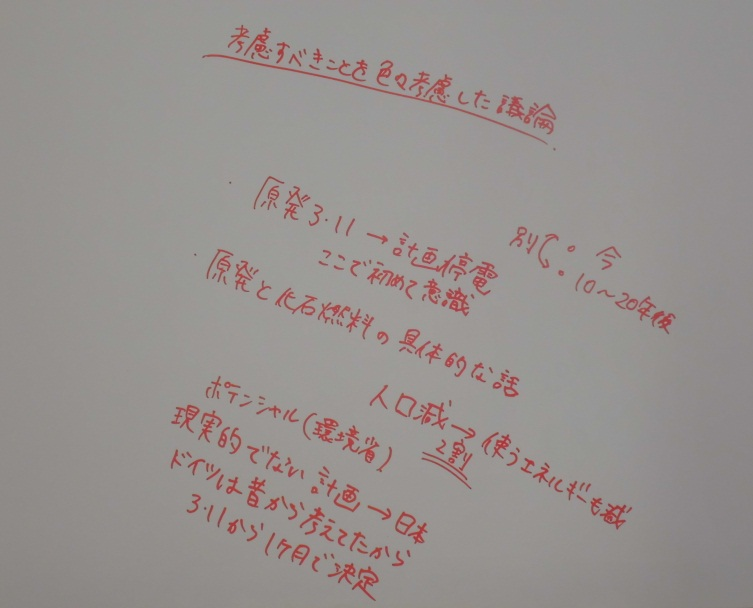 考慮すべきことを色々考慮した議論
・原発3.11→計画停電
ここで初めて意識
別
・今
・10～20年後
・原発と化石燃料の具体的な話
人口減→使うエネルギーも減
2割
ポテンシャル(環境省)
現実的でない計画→日本
ドイツは昔から考えてたから
3.11から1ヶ月で決定